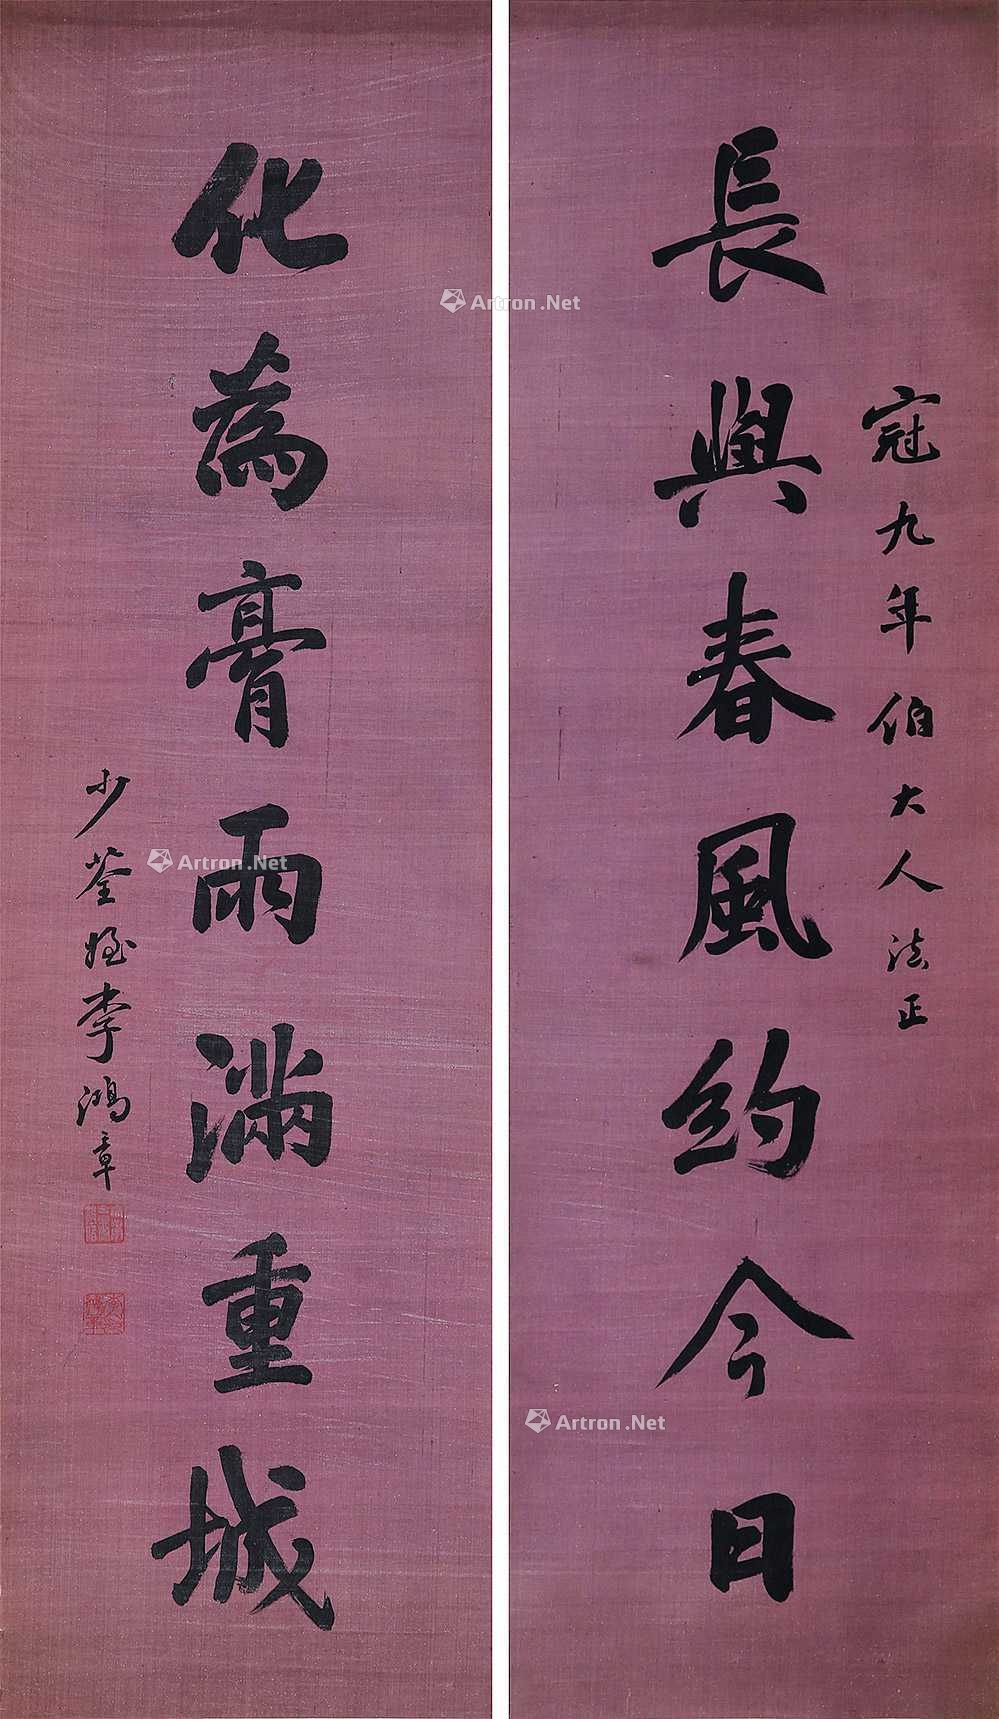 寇九年伯大人法正
長與春風約今日
化為膏雨滿重城
少荃姪李鴻章
Artron.Net
Artron.Net
Artron.Net